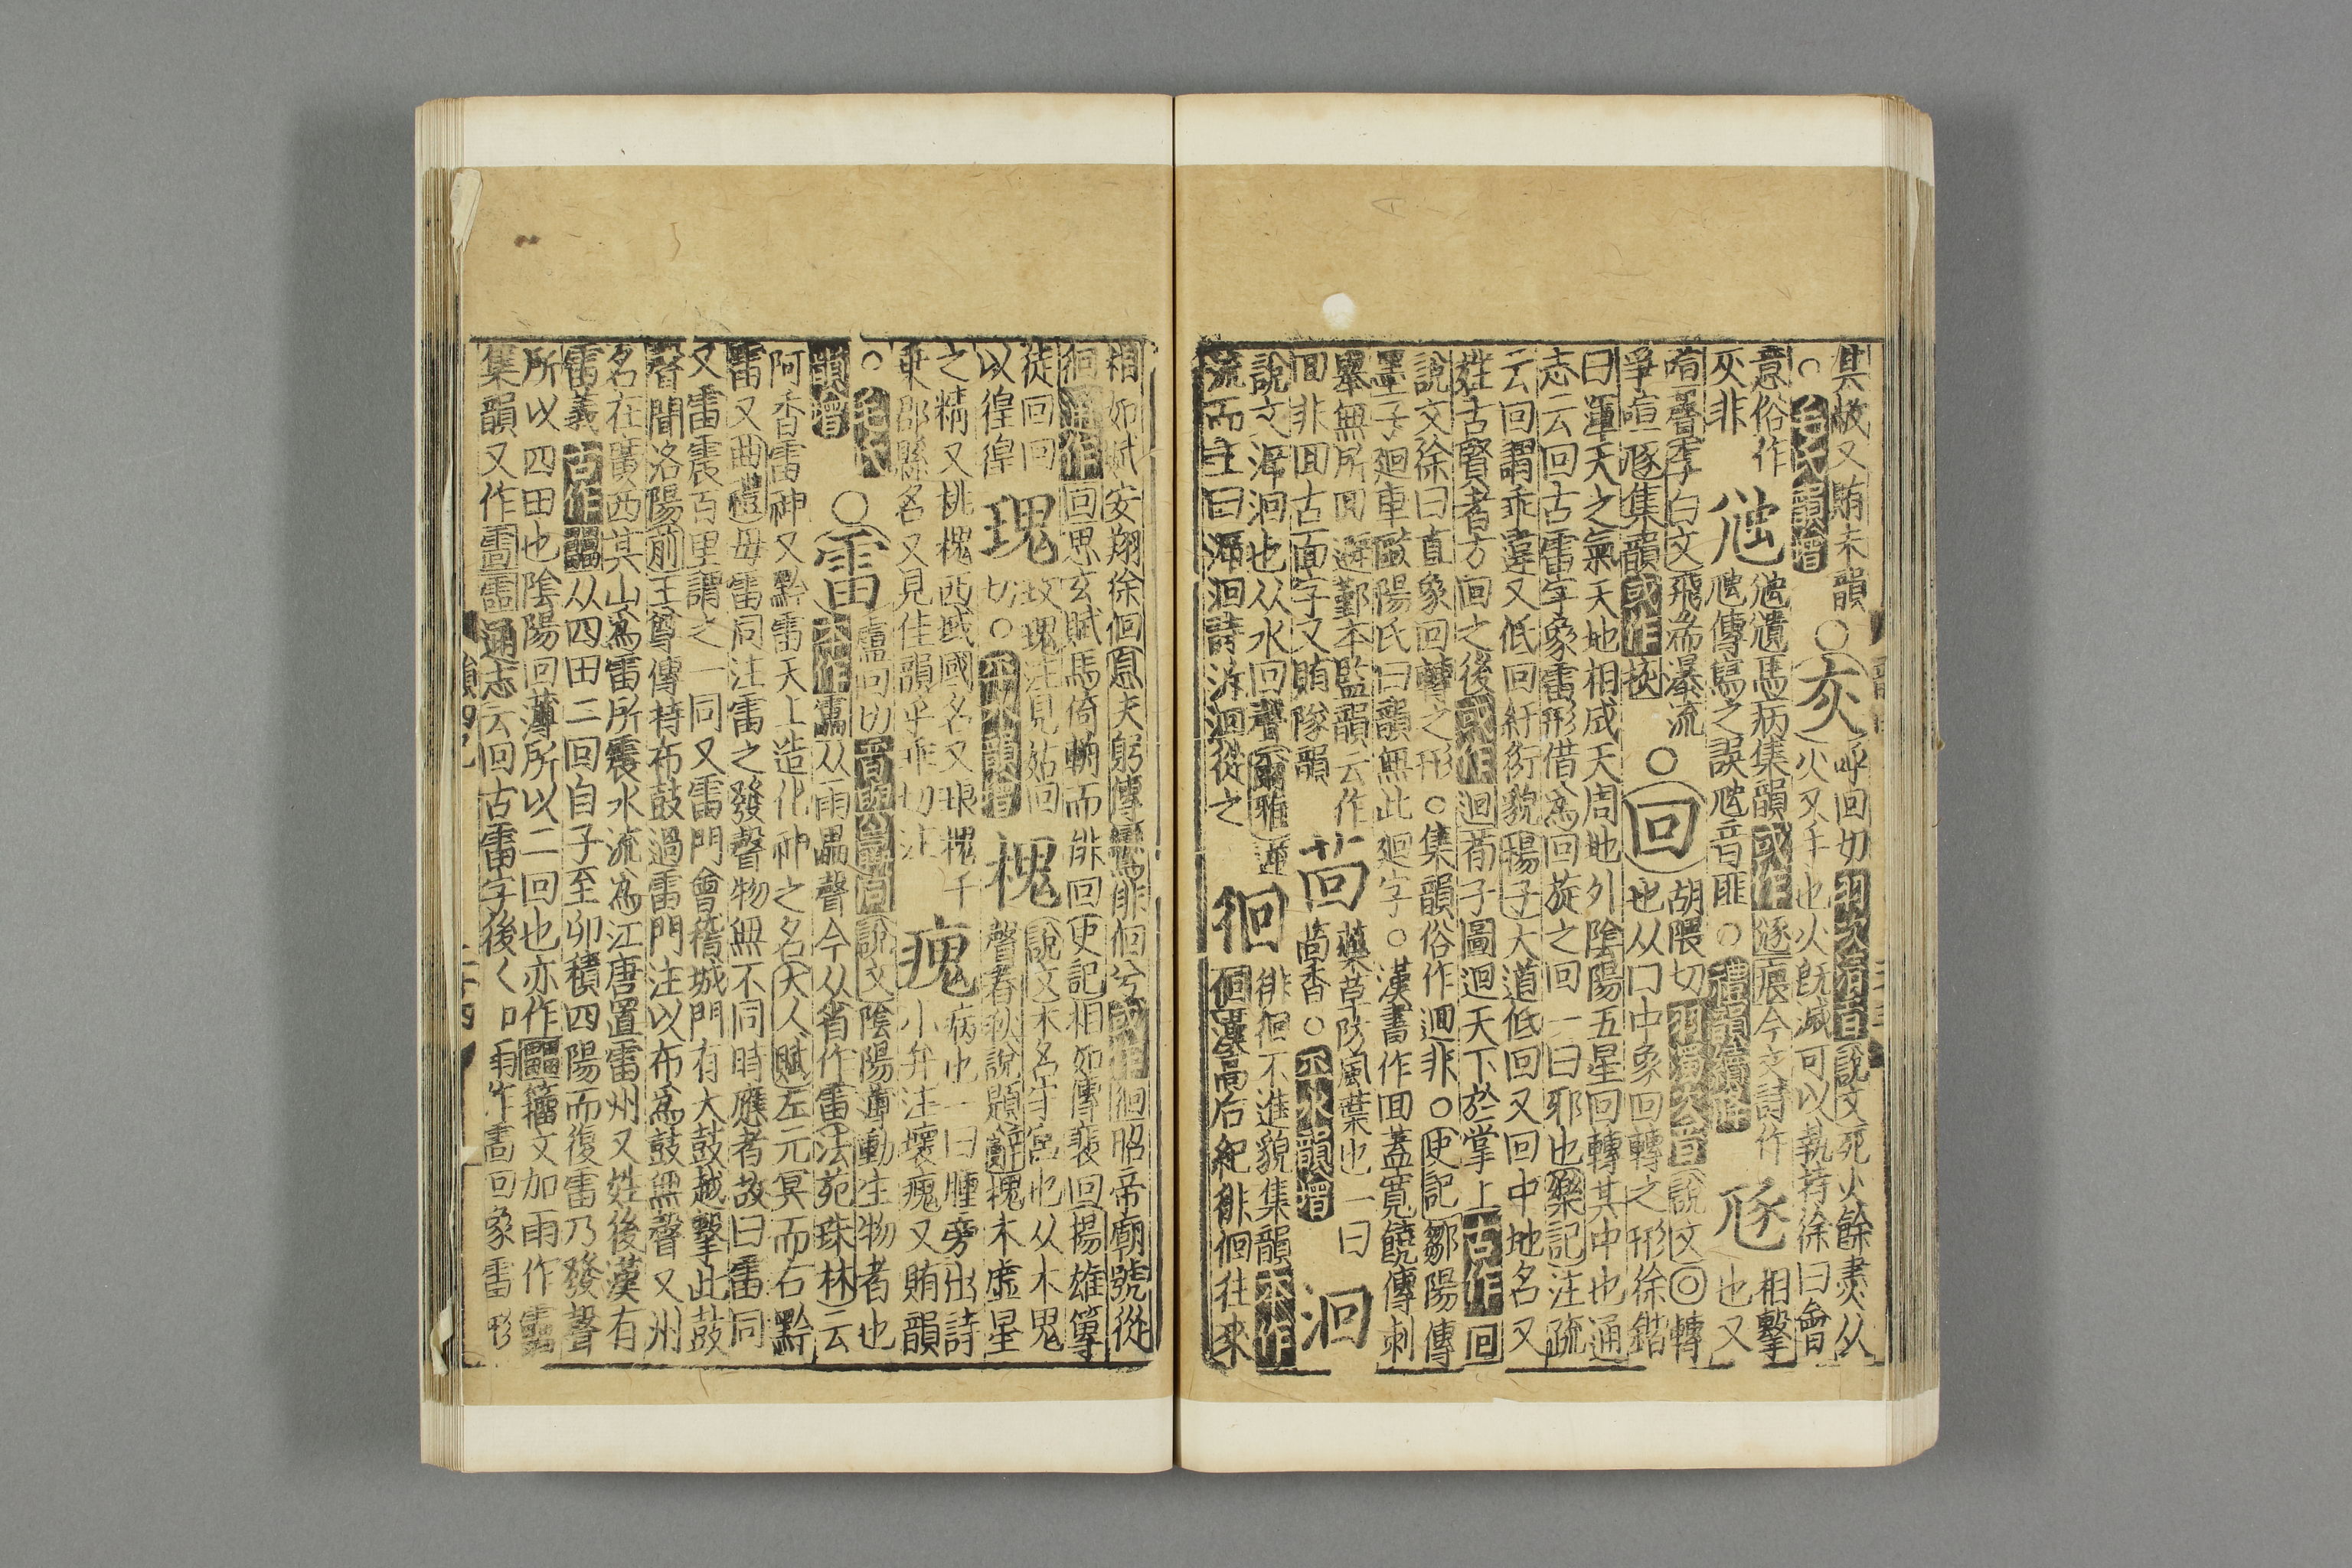 其敀又賄未韻○灰呼回切羽次清音說文死火餘㶳从
○毛氏韻增火又手也火旣滅可以執持徐曰會
意俗作虺虺隤馬病集韻或作㒑痕今文詩作豗相擊
灰非虺傳寫之誤虺音匪○禮韻續降也又
喧聲李白文飛湍瀑流
爭喧豗集韻或作拻○回胡隈切羽濁次音說文◎轉
也从囗中象回轉之形徐鍇
曰渾天之氣天地相成天周地外陰陽五星回轉其中也通
志云回古雷字象雷形借為回旋之回一曰邪也樂記注疏
云回謂乖違又低回紆衍貌揚子大道低回又回中地名又
姓古賢者方回之後或作迴荀子圖迴天下於掌上古作囘
說文徐曰直象回轉之形○集韻俗作迴非○史記鄒陽傳
墨子廻車歐陽氏曰韻無此廻字○漢書作囬蓋寬饒傳刺
舉無所囬避鄞本監韻云作
囬非囬古面字又賄隊韻茴藥草防風葉也一曰
茴香○平水韻增洄
說文㴑洄也从水回聲爾雅逆
流而上曰㴑洄詩泝洄從之徊徘徊不進貌集韻本作
佪漢高后紀徘徊往來
相如賦安翔徐徊原夫躬傳鸞鳥俳佪兮或作徊昭帝廟號從
徊通作回思玄賦馬倚輈而俳回史記相如傳裴回揚雄傳
徒回回
以徨徨瑰玟瑰注見姑回
切○平水韻增槐說文木名守宮也从木鬼
聲春秋說題辭槐木虛星
之精又桃槐西域國名又琅槐千
乘郡縣名又見佳韻乎乖切注瘣病也一曰腫旁出詩
小弁注壞瘣又賄韻
○毛氏
韻增○雷盧回切音與羸同說文陰陽薄動生物者也
本作靁从雨畾聲今从省作雷法苑珠林云
阿香雷神又黔雷天上造化神之名大人賦左元冥而右黔
雷又曲禮毋雷同注雷之發聲物無不同時應者故曰雷同
又雷震百里謂之一同又雷門會稽城門有大鼓越擊此鼓
聲聞洛陽前王尊傳持布鼓過雷門注以布為鼓無聲又州
名在廣西其山為雷所震水流為江唐置雷州又姓後漢有
雷義古作䨻从四田二回自子至卯積四陽而復雷乃發聲
所以四田也陰陽回薄所以二回也亦作籀文加雨作
集韻又作通志云回古雷字後人加雨作回象雷形